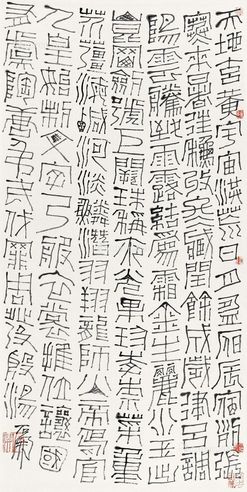 天地玄黃宇宙洪荒日月盈昃辰宿列張
寒來暑往秋收冬藏閏餘成歲律呂調
陽雲騰致雨露結為霜金生麗水玉出
崑岡劍號巨闕珠稱夜光果珍李柰菜重
芥薑海鹹河淡鱗潛羽翔龍師火帝鳥官
人皇始制文字乃服衣裳推位讓國
有虞陶唐弔民伐罪周發殷湯